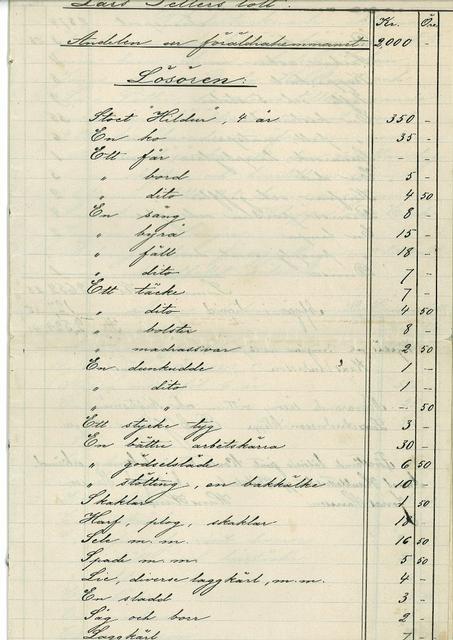 Lars Pellers lott
Kr. Öre
Andelen ur föräldrahemmanet 2,000 -
Lösören:
Stoet "Hildur", 4 år 350 -
En ko 35 -
Ett får - -
" bord 5 -
" dito 4 50
En säng 8 -
" byrå 15 -
" fäll 18 -
" dito 7 -
Ett täcke 7 -
" dito 4 50
" bolster 8 -
" madrassvar 2 50
En dunkudde 1 -
" dito 1 -
" " - 50
Ett stycke tyg 3 -
En bättre arbetskärra 30 -
" gödselsläde 6 50
" stötting, en bakkälke 10 -
Skaklar 1 50
Harf, plog, skaklar 18 -
Sele m.m. 16 50
Spade m.m. 5 50
Lie, diverse laggkärl, m.m. 4 -
En 3 -
Såg och borr 2 -
Laggkärl 7